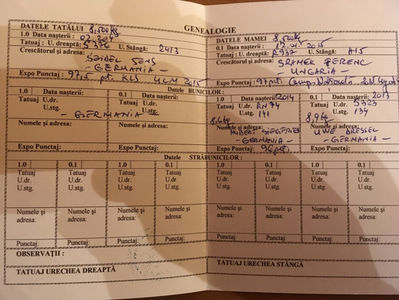 GENEALOGIE
DATELE TATĂLUI 8,500kg
1.0 Data nașterii: 2015
Tatuaj: U. dreaptă: S376 U. Stângă: 2413
Crescătorul și adresa:
SEIDEL JENS
- GERMANIA -
Expo Punctaj: 97,5 pt. KLS ULM 2015
DATELE MAMEI 8,500kg
0.1 Data nașterii: 2015
Tatuaj: U dreaptă: U. Stângă: A15
Crescătorul și adresa:
SRAMER FERENC
- UNGARIA -
Expo Punctaj: 97
Datele BUNICILOR:
1.0 Data nașterii:
Tatuaj
U.dr.
U.stg.
Numele și adresa:
- GERMANIA -
Expo Punctaj:
0.1 Data nașterii:
Tatuaj
U.dr.
U.stg.
Numele și adresa:
Expo Punctaj:
1.0 Data nașterii: 2014
Tatuaj
U.dr. RN94
U.stg. 141
8,6kg
Numele și adresa:
- GERMANIA -
Expo Punctaj: 96
0.1 Data nașterii: 2013
Tatuaj
U.dr. S323
U.stg. 134
8,9kg
Numele și adresa:
UWE DRESSEL
- GERMANIA -
Expo Punctaj:
Datele STRĂBUNICILOR:
1.0 0.1 1.0 0.1 1.0 0.1 1.0 0.1
Tatuaj Tatuaj Tatuaj Tatuaj Tatuaj Tatuaj Tatuaj Tatuaj
U.dr. U.dr. U.dr. U.dr. U.dr. U.dr. U.dr. U.dr.
U.stg. U.stg. U.stg. U.stg. U.stg. U.stg. U.stg. U.stg.
Numele și adresa: Numele și adresa: Numele și adresa: Numele și adresa: Numele și adresa: Numele și adresa: Numele și adresa: Numele și adresa:
Punctaj: Punctaj: Punctaj: Punctaj: Punctaj: Punctaj: Punctaj: Punctaj:
OBSERVAȚII:
TATUAJ URECHEA DREAPTĂ
TATUAJ URECHEA STÂNGĂ